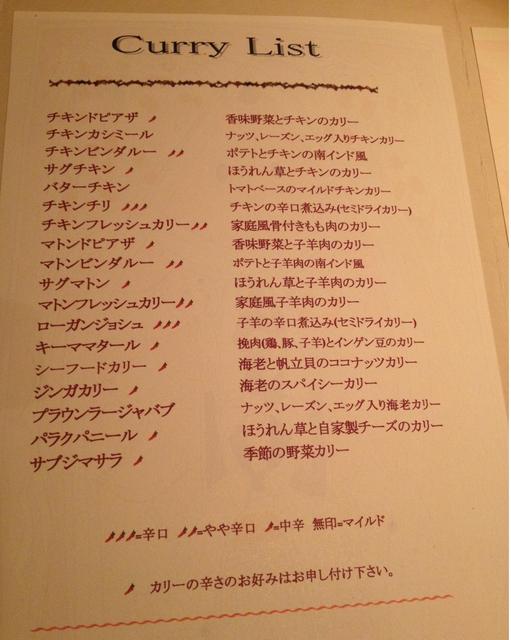 Curry List
チキンドピアザ 香味野菜とチキンのカリー
チキンカシミール ナッツ、レーズン、エッグ入りチキンカリー
チキンビンダルー ポテトとチキンの南インド風
サグチキン ほうれん草とチキンのカリー
バターチキン トマトベースのマイルドチキンカリー
チキンチリ チキンの辛口煮込み(セミドライカリー)
チキンフレッシュカリー 家庭風骨付きもも肉のカリー
マトンドピアザ 香味野菜と子羊肉のカリー
マトンビンダルー ポテトと子羊肉の南インド風
サグマトン ほうれん草と子羊肉のカリー
マトンフレッシュカリー 家庭風子羊肉のカリー
ローガンジョシュ 子羊の辛口煮込み(セミドライカリー)
キーママタール 挽肉(鶏、豚、子羊)とインゲン豆のカリー
シーフードカリー 海老と帆立貝のココナッツカリー
ジンガカリー 海老のスパイシーカリー
ブラウンラージャバブ ナッツ、レーズン、エッグ入り海老カリー
パラクパニール ほうれん草と自家製チーズのカリー
サブジマサラ 季節の野菜カリー
=辛口 =やや辛口 =中辛 無印=マイルド
カリーの辛さのお好みはお申し付け下さい。